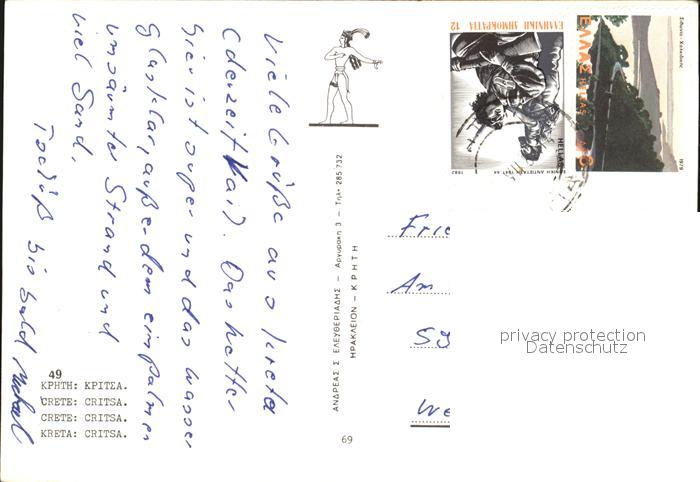 Viele Grüße aus Kreta
(derzeit Kai). Das Wetter
hier ist super und das Wasser
glasklar, außerdem ein palmen
umsäumter Strand und
viel Sand.
Tschüß bis bald Michael
49
ΚΡΗΤΗ: ΚΡΙΤΣΑ.
CRETE: CRITSA.
CRETE: CRITSA.
KRETA: CRITSA.
ΑΝΔΡΕΑΣ Σ ΕΛΕΥΘΕΡΙΑΔΗΣ — Αργυράκη 3 — Τηλ. 285 732
ΗΡΑΚΛΕΙΟΝ — ΚΡΗΤΗ
69
12 ΕΛΛΗΝΙΚΗ ΔΗΜΟΚΡΑΤΙΑ
HELLAS
ΕΘΝΙΚΗ ΑΝΤΙΣΤΑΣΗ 1941-44
1982
ΕΛΛΑΣ HELLAS
8
Σιθωνία - Χαλκιδικής
1979
Frie
Am
We
privacy protection
Datenschutz